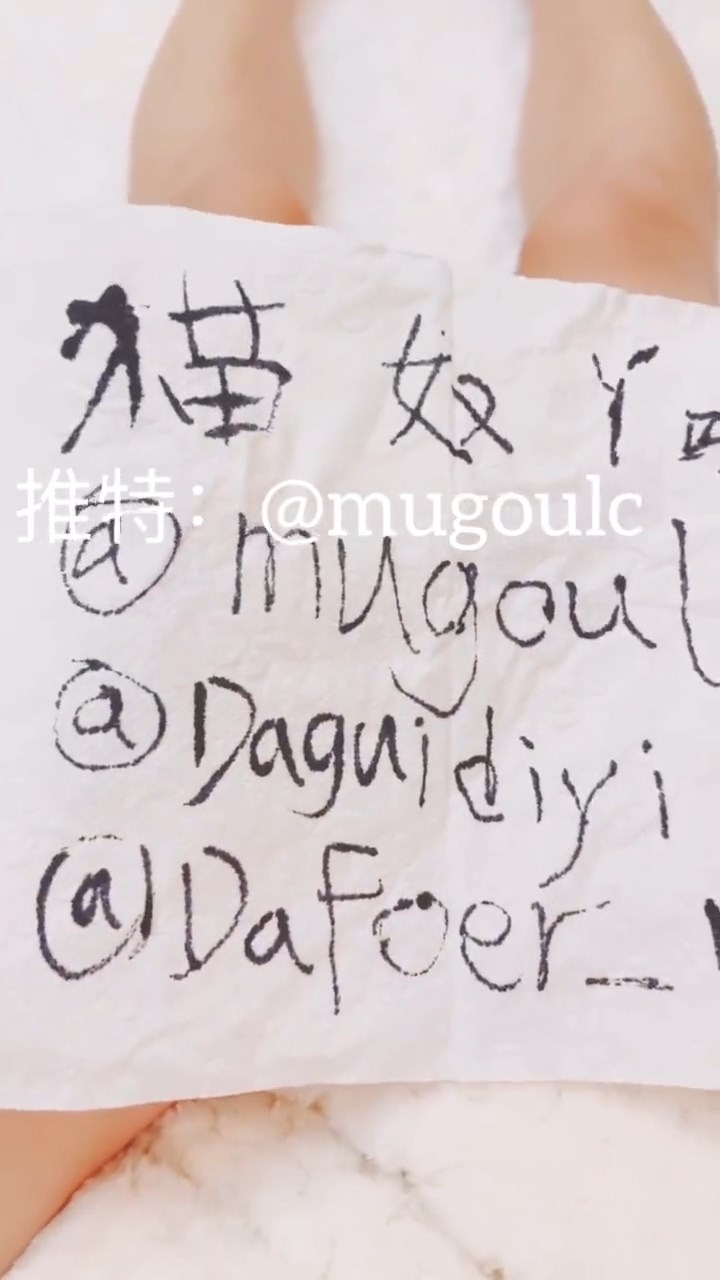 猫奴丫
推特：@mugoulc
@mugoul
@Daguidiyi
@Dafoer_